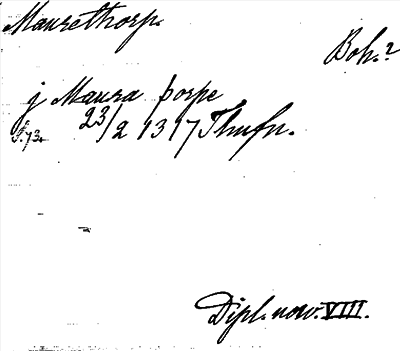 Maurethorp.
Boh.?
j Maura þorpe
S. 73. 23/2 1317 Thmfn.
Dipl. nov. VIII.